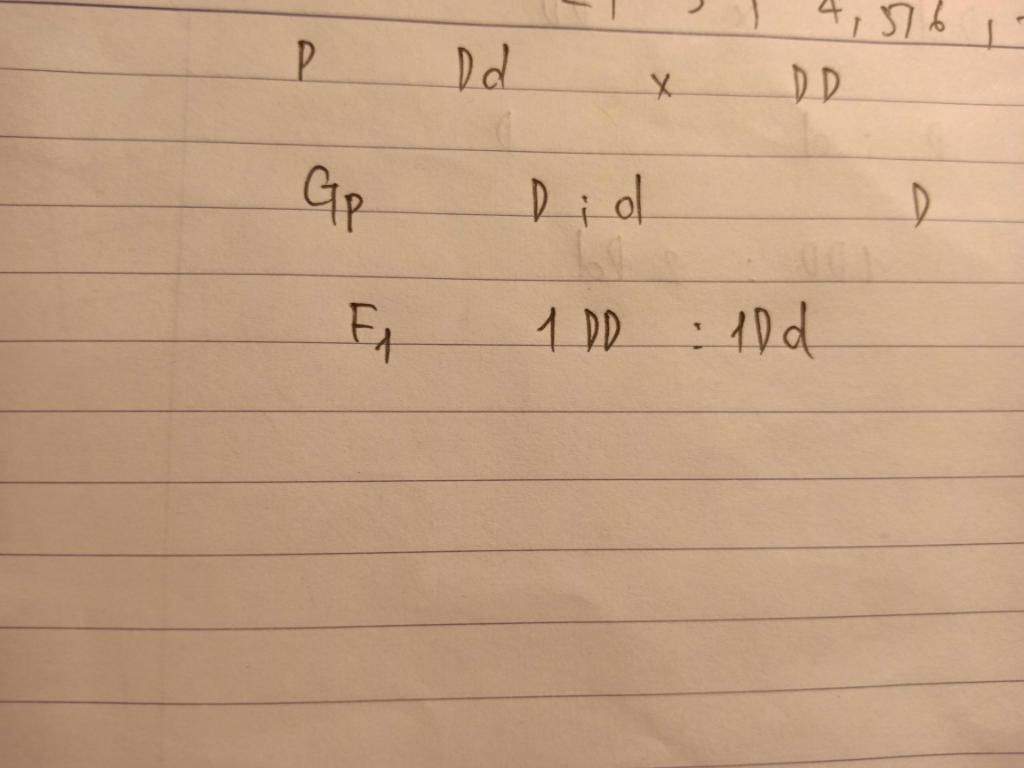 4, 576,
P Dd x DD
Gp D ; d D
F1 1 DD : 1Dd